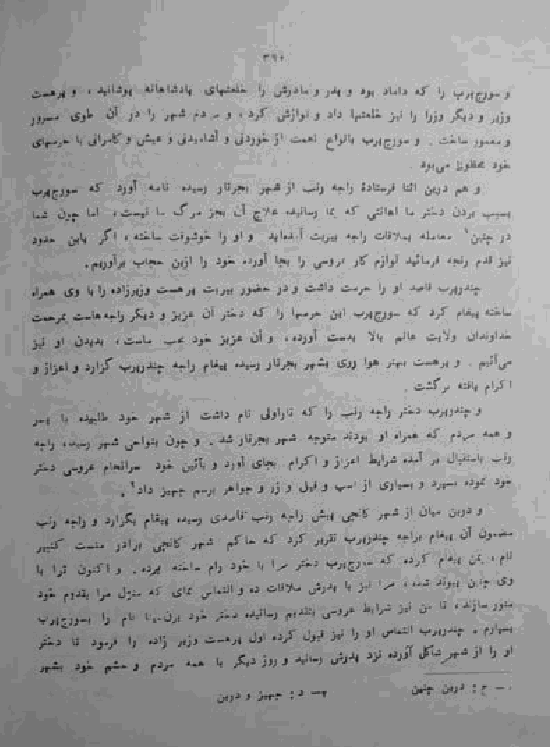 و سورج‌پرب را که داماد بود و پدر و مادرش را خلعتهای پادشاهانه پوشانید ، و پرهست
وزیر و دیگر وزرا را نیز خلعتها داد و نوازش کرد ، و مردم شهر را در آن طوی مسرور
و معمور ساخت . و سورج‌پرب بانواع نعمت از خوردنی و آشامیدنی و عیش و کامرانی با حرمهای
خود محظوظ می‌بود
و هم درین اثنا فرستادهٔ راجه رنب از شهر بجرتار رسیده نامه آورد که سورج‌پرب
بسبب بردن دختر ما اهانتی که بما رسانیده علاج آن بجز مرگ ما نیست ، اما چون شما
در چنین معامله بملاقات راجه بیربت آمده‌اید و او را خوشوقت ساخته ، اگر باین حدود
نیز قدم رنجه فرمائید لوازم کار عروسی را بجا آورده خود را ازین حجاب برآوریم .
چندرپرب قاصد او را حرمت داشت و در حضور بیربت پرهست وزیرزاده را با وی همراه
ساخته پیغام کرد که سورج‌پرب این حرمها را که دختر آن عزیز و دیگر راجه‌هاست بمرحمت
خداوندان ولایت عالم بالا بدست آورده ، و آن عزیز خود محب ماست ، بدیدن او نیز
می‌آئیم . و پرهست بهنر هوا روی بشهر بجرتار رسیده پیغام راجه چندرپرب گزارد و اعزاز و
اکرام یافته برگشت .
و چندرپرب دختر راجه رنب را که تاراولی نام داشت از شهر خود طلبیده با پسر
و همه مردم که همراه او بودند متوجه شهر بجرتار شد . و چون بنواحی شهر رسید ، راجه
رنب باستقبال بر آمده شرایط اعزاز و اکرام بجای آورد و بآئین خود سرانجام عروسی دختر
خود نموده بسپرد و بسیاری از اسپ و فیل و زر و جواهر برسم جهیز داد .
و درین میان از شهر کانچی پیش راجه رنب قاصدی رسیده پیغام بگزارد و راجه رنب
مضمون آن پیغام براجه چندرپرب تقریر کرد که حاکم شهر کانچی برادر منست کنبیر
نام ، بمن پیغام کرده که سورج‌پرب دختر مرا با خود رام ساخته برده . و اکنون ترا با
وی چنین پیوند شده ، مرا نیز با پدرش ملاقات ده و التماس نمای که منزل مرا بقدوم خود
منور سازند ، تا من نیز شرایط عروسی بتقدیم رسانیده دختر خود نام را بسورج‌پرب
بسپارم . چندرپرب التماس او را نیز قبول کرده اول پرهست وزیر زاده را فرمود تا دختر
او را از شهر شاکل آورده نزد پدرش رسانید و روز دیگر با همه مردم و حشم خود بشهر
۱- ج : درین چنین ۲- د : جهیز و درین